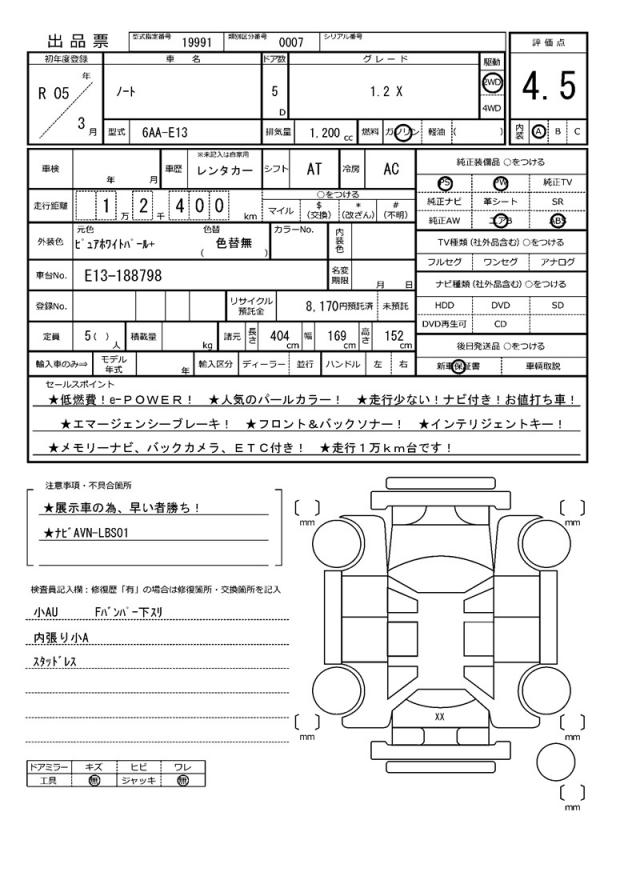 出品票 型式指定番号 19991 類別区分番号 0007 シリアル番号
初年度登録 車名 ドア数 グレード 駆動 評価点
R 05 年 3 月 ノート 5 D 1.2 X 2WD 4WD 4.5
型式 6AA-E13 排気量 1.200 cc 燃料 ガソリン 軽油 ( ) 内装 A B C
車検 年 月 車歴 ※未記入は自家用 レンタカー シフト AT 冷房 AC 純正装備品 ○をつける
PS PW 純正TV
走行距離 1 万 2 千 4 0 0 km ○をつける マイル $ (交換) * (改ざん) # (不明) 純正ナビ 革シート SR
純正AW エアB ABS
外装色 元色 ピュアホワイトパール+ 色替 ( 色替無 ) カラーNo. 内装色 TV種類 (社外品含む) ○をつける
フルセグ ワンセグ アナログ
車台No. E13-188798 名変期限 月 日 ナビ種類 (社外品含む) ○をつける
登録No. リサイクル預託金 8,170円預託済 未預託 HDD DVD SD
DVD再生可 CD
定員 5( ) 人 積載量 kg 諸元 長さ 404 cm 幅 169 cm 高さ 152 cm 後日発送品 ○をつける
輸入車のみ⇒ モデル年式 年 輸入区分 ディーラー 並行 ハンドル 左 右 新車保証書 車輌取説
セールスポイント
★低燃費！e-POWER！ ★人気のパールカラー！ ★走行少ない！ナビ付き！お値打ち車！
★エマージェンシーブレーキ！ ★フロント＆バックソナー！ ★インテリジェントキー！
★メモリーナビ、バックカメラ、ETC付き！ ★走行1万km台です！
注意事項・不具合箇所
★展示車の為、早い者勝ち！
★ナビAVN-LBS01
mm mm
検査員記入欄：修復歴「有」の場合は修復箇所・交換箇所を記入
小AU Fバンパー下スリ
内張り小A
スタッドレス
XX
mm mm
ドアミラー キズ ヒビ ワレ
工具 無 ジャッキ 無
mm